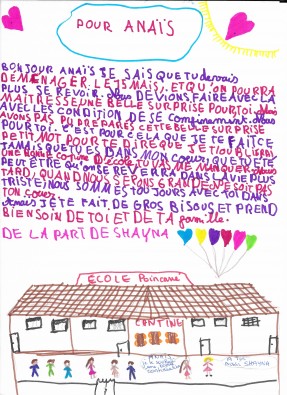 POUR ANAÏS
BONJOUR ANAÏS JE SAIS QUE TU devrais
DEMENAGER LE 15 MAI, ET QU'ON POURRA
PLUS SE REVOIR. Nous DEVIONS FAIRE AVEC LA
MAITRESSE UNE BELLE SURPRISE POUR TOI. Mais
AVEC LES CONDITION DE SE confinement. Nous
AVONS PAS PU PREPARES CETTE BELLE SURPRISE
POUR TOI. C'EST POUR CELA QUE JE TE FAIT CE
PETIT MOT POUR TE DIRE QUE JE T'OUBLIERAI
JAMAIS QUE TU ES DANS MON COEUR, QUE TU ÉTÉ
UNE BONNE copine D'école, TU VAS ME MANQUER. Nous
PEUT ÊTRE QU'ON SE REVERRA DANS LA RUE PLUS
TARD, QUAND NOUS SERONS GRANDE. NE SOIT PAS
TRISTE, NOUS SOMMES TOUJOURS AVEC TOI DANS
TON COEUR.
Anais JE TE FAIT, DE GROS BISOUS ET PREND
BIEN SOIN DE TOI ET DE TA famille.
DE LA PART DE SHAYNA
ECOLE Poincare
CANTINE
SHAYNA